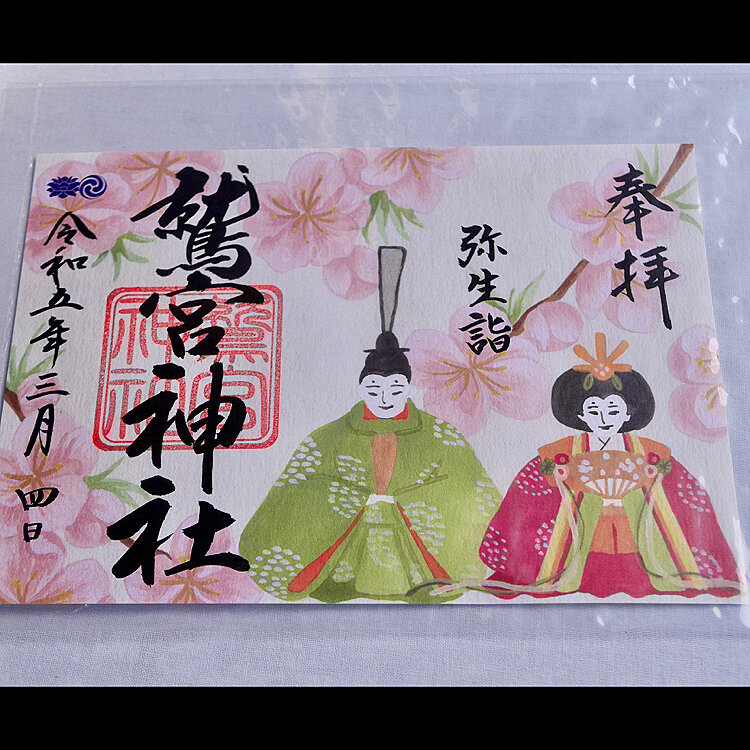 奉拝
弥生詣
鷲宮神社
鷲宮
神社
令和五年三月四日